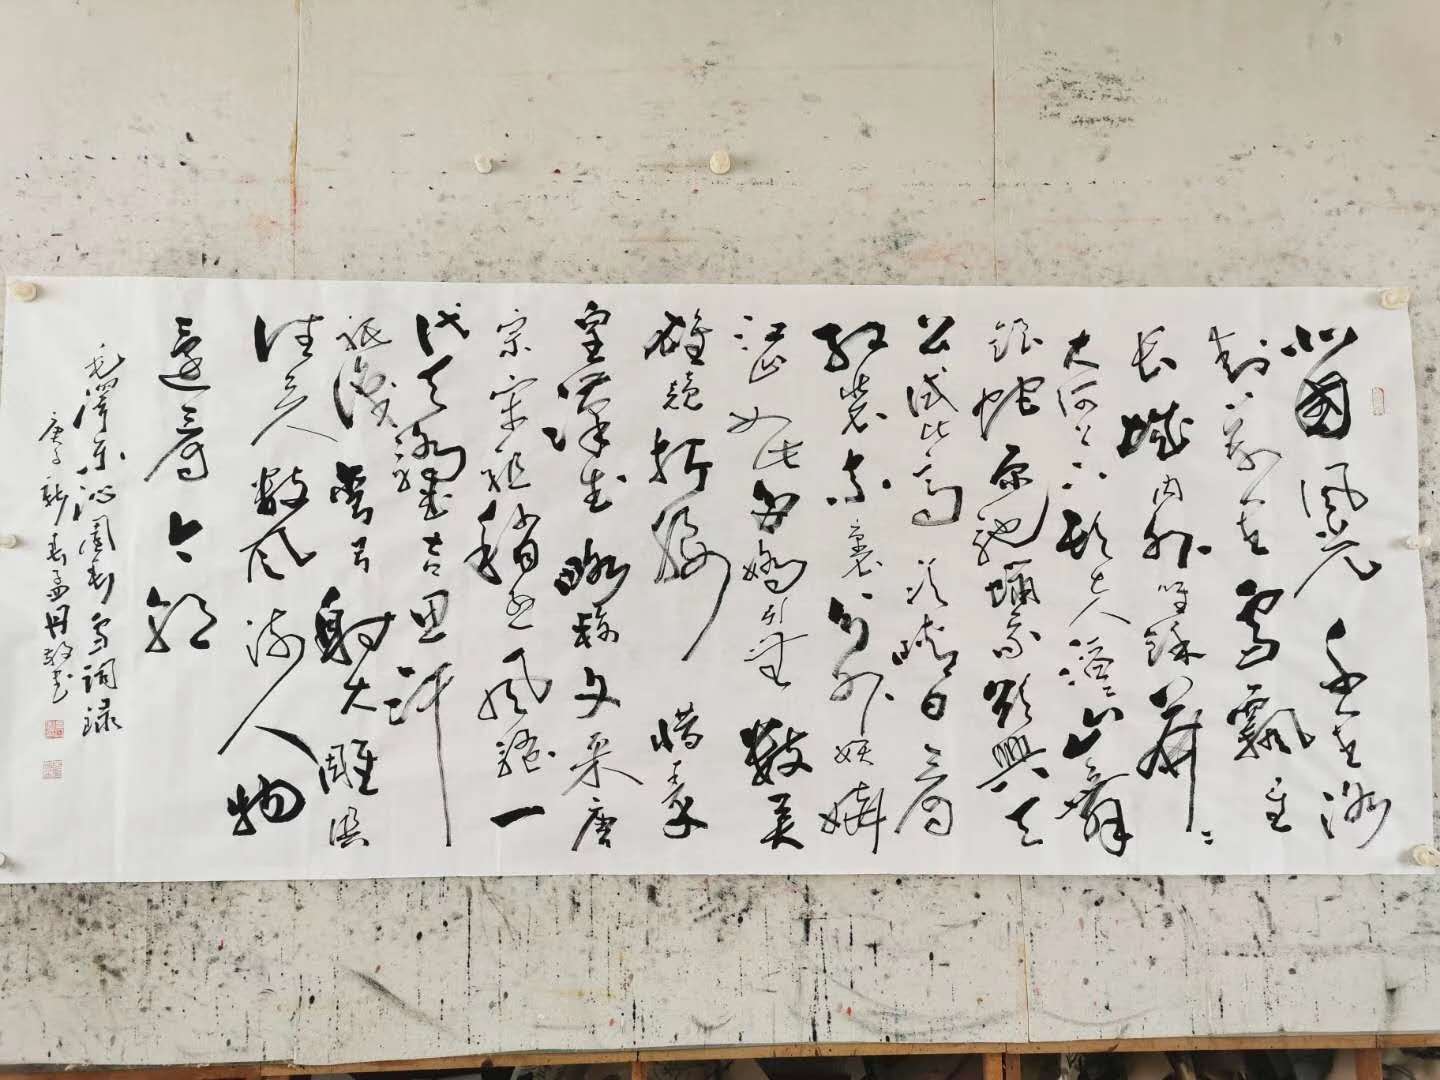 北国风光千里冰
封万里雪飘望
长城内外唯余莽々
大河上下顿失滔々山舞
银蛇原驰蜡象欲与天
公试比高须晴日看
红装素裹分外妖娆
江山如此多娇引无数英
雄竞折腰惜秦
皇汉武略输文采唐
宗宋祖稍逊风骚一
代天骄成吉思汗
只识弯弓射大雕俱
往矣数风流人物
还看今朝
毛泽东沁园春雪词录
庚子新春孟